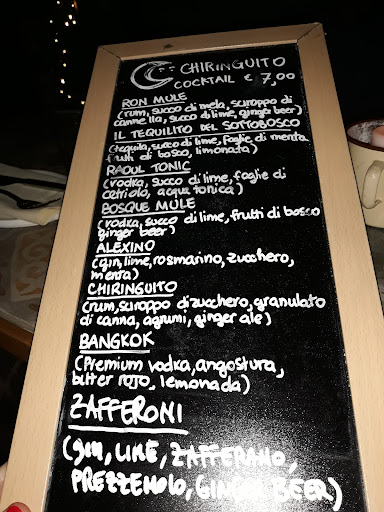 CHIRINGUITO
COCKTAIL € 7,00
RON MULE
(rum, succo di mela, sciroppo di
cannella, succo di lime, ginger beer)
IL TEQUILITO DEL SOTTOBOSCO
(tequila, succo di lime, foglie di menta
frutti di bosco, limonata)
RAOUL TONIC
(vodka, succo di lime, foglie di
cetriolo, acqua tonica)
BOSQUE MULE
(vodka, succo di lime, frutti di bosco
ginger beer)
ALEXINO
(gin, lime, rosmarino, zucchero,
menta)
CHIRINGUITO
(rum, sciroppo di zucchero, granulato
di canna, agrumi, ginger ale)
BANGKOK
(Premium vodka, angostura,
bitter rojo, lemonada)
ZAFFERONI
(GIN, LIME, ZAFFERANO,
PREZZEMOLO, GINGER BEER)